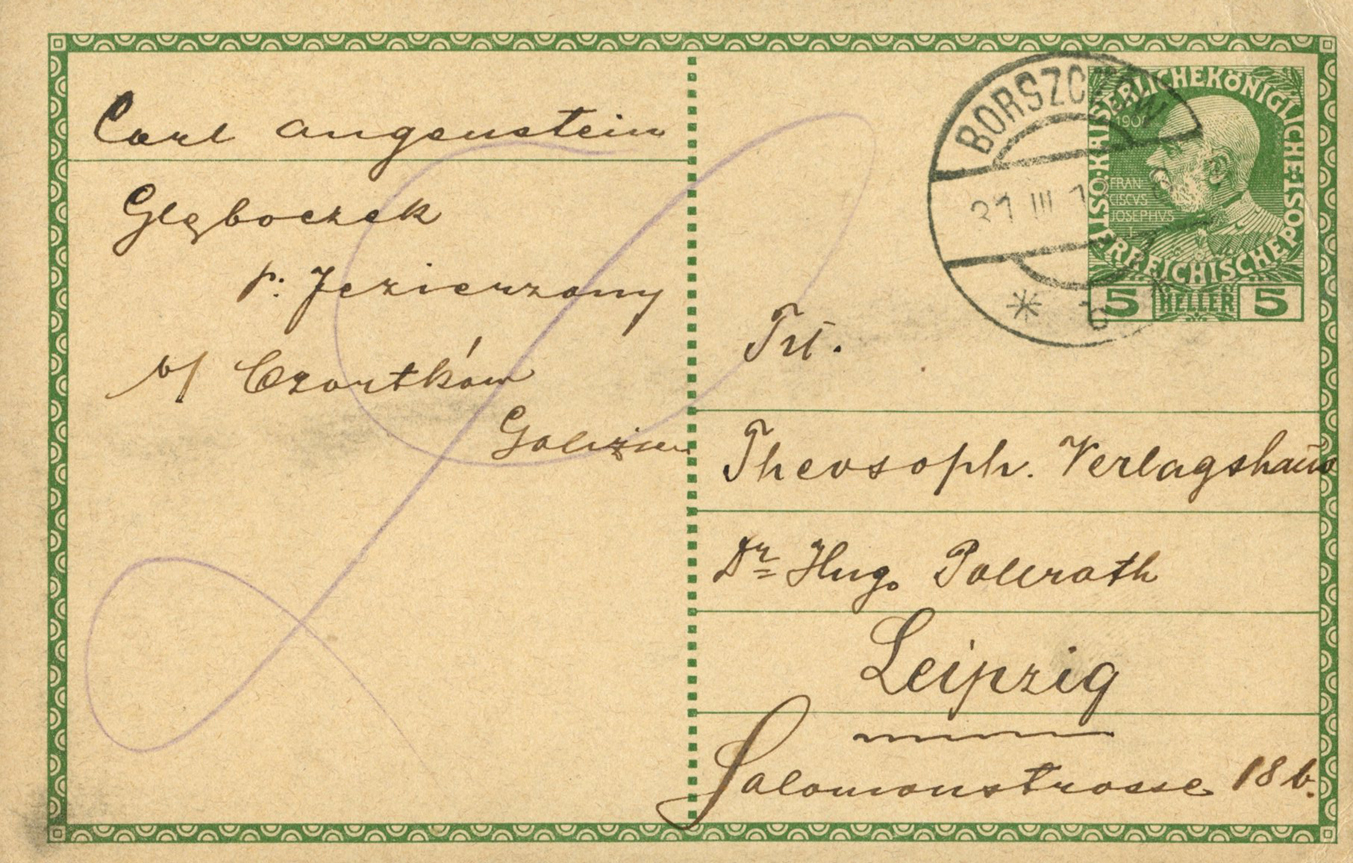 Carl Angenstein
Głęboczek
p. Jezierzany
b/ Czortków
Galizien
BORSZCZÓW
31 III 1
* b
KAISERLICHE KÖNIGLICHE
OSTERREICHISCHE POST
1908
FRAN
CISCVS
JOSEPHVS
I
5 HELLER 5
Tit.
Theosoph. Verlagshaus
Dr Hugo Vollrath
Leipzig
Salomonstrasse 18b.